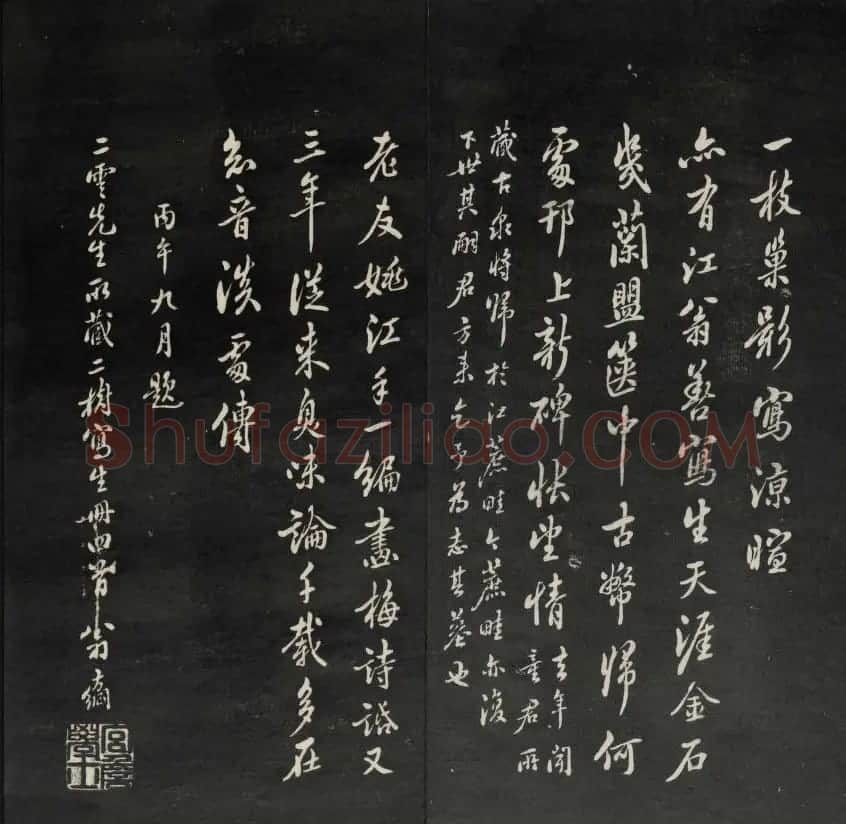 一枝巢影寫涼暄
亦有江翁善寫生天涯金石
幾蘭盟篋中古幣歸何
處邗上新碑悵望情去年聞
童君所
藏古泉將歸於江蔗畦今蔗畦亦復
下世其嗣君方來乞予為志其墓也
老友姚江手一編畫梅詩話又
三年從來臭味論千載多在
希音淡處傳
丙午九月題
二雲先生所藏二樹寫生冊四首翁方綱
宮詹學士
Shufaziliao.COM